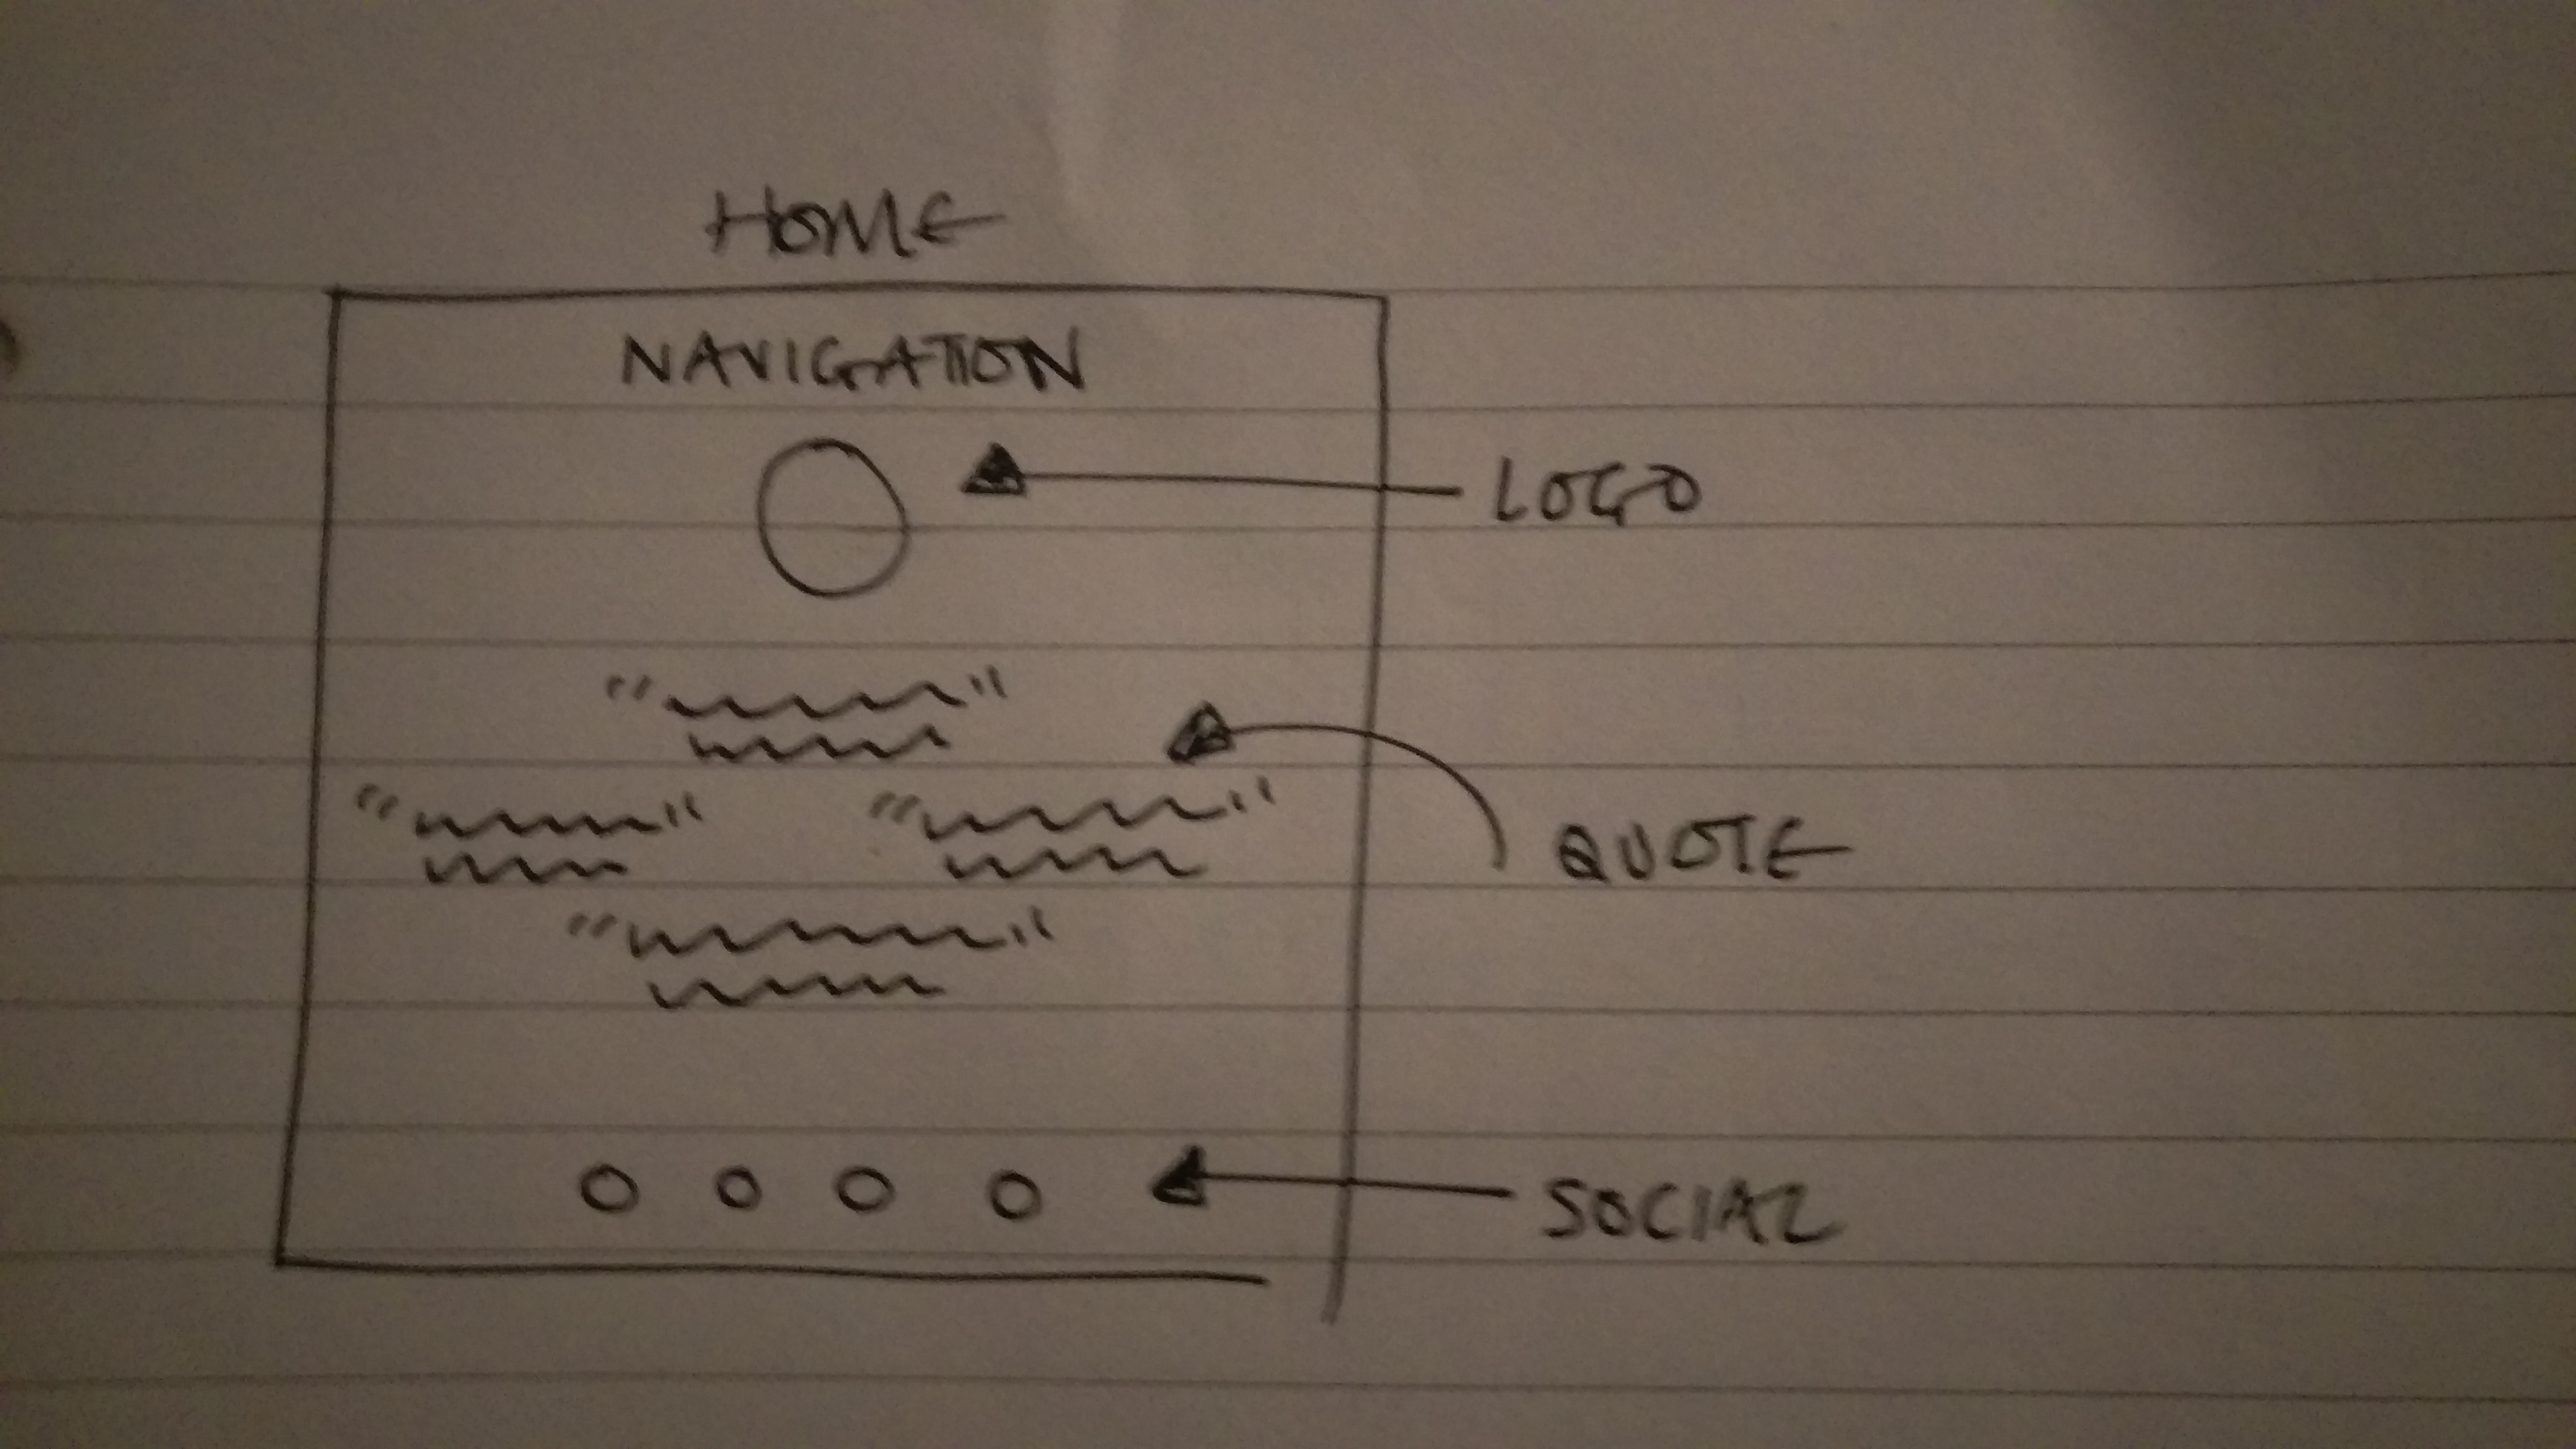 HOME
NAVIGATION
LOGO
QUOTE
SOCIAL